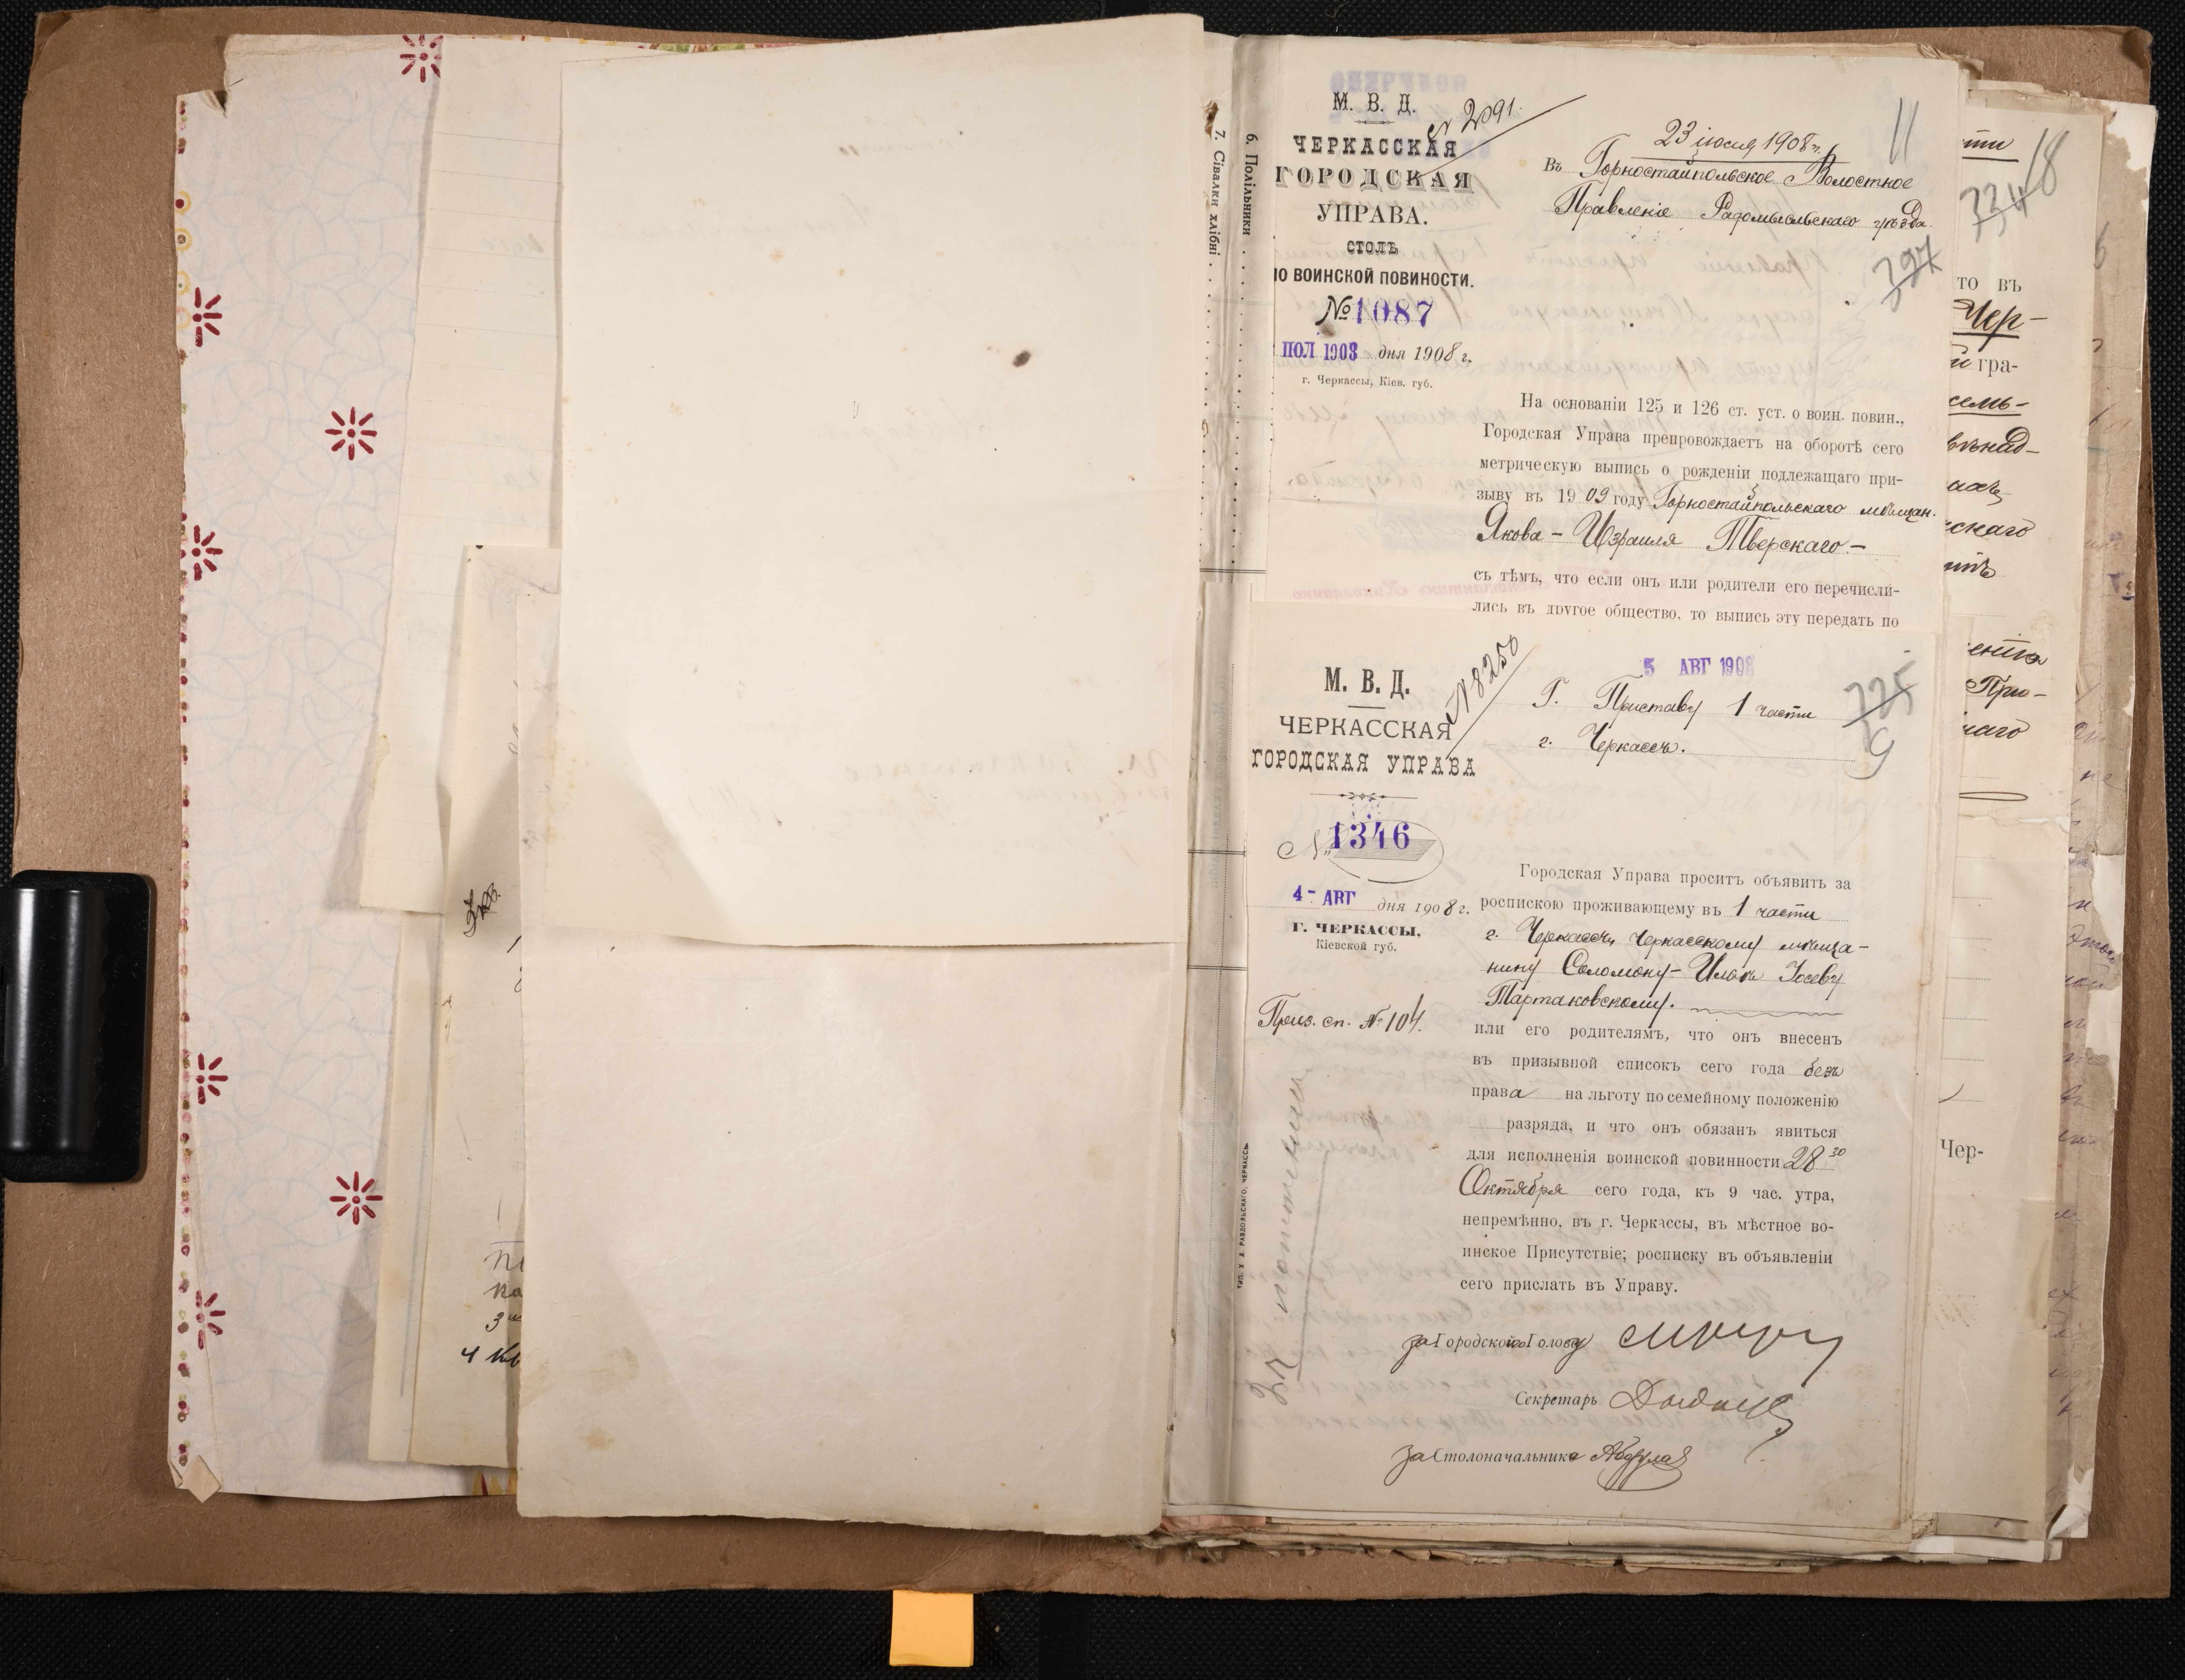 7. Сівалки хлібні
6. Полільники
М. В. Д.
№ 2091.
ЧЕРКАССКАЯ
ГОРОДСКАЯ
УПРАВА.
СТОЛЪ
ПО ВОИНСКОЙ ПОВИНОСТИ.
№ 1087
ІЮЛ 1908 дня 1908 г.
г. Черкассы, Кіев. губ.
11
23 іюля 1908 г.
Въ Горностайпольское Волостное
Правленіе Радомысльскаго уѣзда.
397
На основаніи 125 и 126 ст. уст. о воин. повин.,
Городская Управа препровождаетъ на оборотѣ сего
метрическую выпись о рожденіи подлежащаго при-
зыву въ 1909 году Горностайпольскаго мѣщан.
Якова-Израиля Тверскаго.-
съ тѣмъ, что если онъ или родители его перечисли-
лись въ другое общество, то выпись эту передать по
М. В. Д.
№ 8250
ЧЕРКАССКАЯ
ГОРОДСКАЯ УПРАВА
№ 1346
4- АВГ дня 1908 г.
Г. ЧЕРКАССЫ,
Кіевской губ.
Приз. сп. № 104.
5 АВГ 1908
Г. Приставу 1 части
г. Черкассъ.
9
Городская Управа проситъ объявить за
роспискою проживающему въ 1 части
г. Черкассъ, черкасскому мѣща-
нину Соломону-Илья Іосеву
Тартаковскому.
или его родителямъ, что онъ внесенъ
въ призывной списокъ сего года безъ
права на льготу по семейному положенію
разряда, и что онъ обязанъ явиться
для исполненія воинской повинности 28го
Октября сего года, къ 9 час. утра,
непремѣнно, въ г. Черкассы, въ мѣстное во-
инское Присутствіе; росписку въ объявленіи
сего прислать въ Управу.
за Городского Голову
Секретарь
за Столоначальника
ТИП. Х. Д. РАЗДОЛЬСКАГО, ЧЕРКАССЫ
8
334
то въ
Чер-
гра-
семь-
Чер-